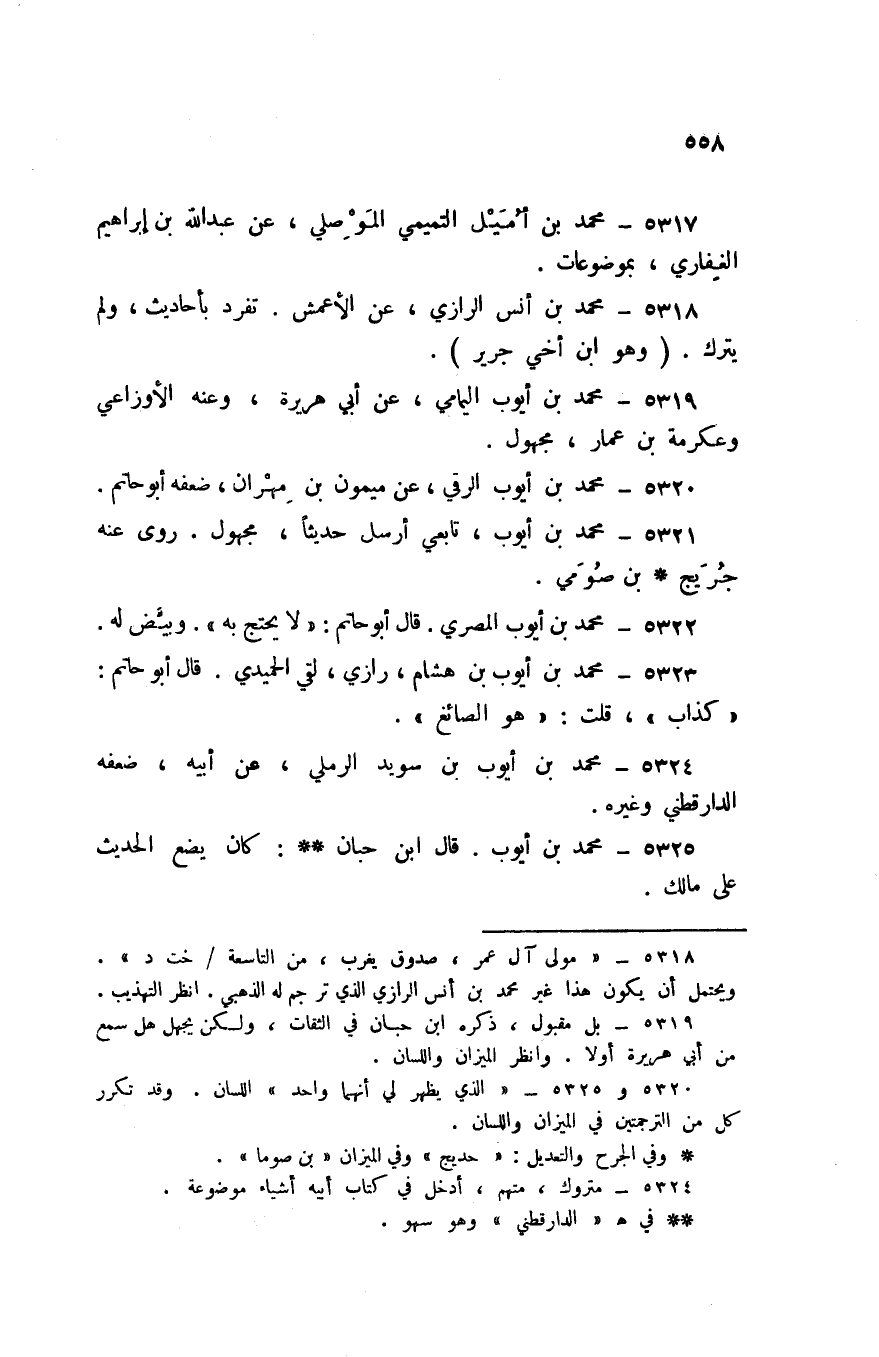 ٥٥٨
٥٣١٧ – محمد بن أُمَيْل التميمي المَوْصِلي ، عن عبدالله بن إبراهيم
الغِفاري ، بموضوعات .
٥٣١٨ – محمد بن أنس الرازي ، عن الأعمش . تفرد بأحاديث ، ولم
يترك . ( وهو ابن أخي جرير ) .
٥٣١٩ – محمد بن أيوب اليمامي ، عن أبي هريرة ، وعنه الأوزاعي
وعكرمة بن عمار ، مجهول .
٥٣٢٠ – محمد بن أيوب الرقي ، عن ميمون بن مِهْران ، ضعفه أبوحاتم .
٥٣٢١ – محمد بن أيوب ، تابعي أرسل حديثاً ، مجهول . روى عنه
جُرَيج * بن صُوَمي .
٥٣٢٢ – محمد بن أيوب المصري . قال أبوحاتم : « لا يحتج به » . وبيَّض له .
٥٣٢٣ – محمد بن أيوب بن هشام ، رازي ، لقي الحميدي . قال أبو حاتم :
« كذاب » ، قلت : « هو الصائغ » .
٥٣٢٤ – محمد بن أيوب بن سويد الرملي ، عن أبيه ، ضعفه
الدارقطني وغيره .
٥٣٢٥ – محمد بن أيوب . قال ابن حبان ** : كان يضع الحديث
على مالك .
٥٣١٨ – « مولى آل عمر ، صدوق يغرب ، من التاسعة / خت د » .
ويحتمل أن يكون هذا غير محمد بن أنس الرازي الذي ترجم له الذهبي . انظر التهذيب .
٥٣١٩ – بل مقبول ، ذكره ابن حبان في الثقات ، ولكن يجهل هل سمع
من أبي هريرة أولا . وانظر الميزان واللسان .
٥٣٢٠ و ٥٣٢٥ – « الذي يظهر لي أنهما واحد » اللسان . وقد تكرر
كل من الترجمتين في الميزان واللسان .
* وفي الجرح والتعديل : « حديج » وفي الميزان « بن صوما » .
٥٣٢٤ – متروك ، متهم ، أدخل في كتاب أبيه أشياء موضوعة .
** في ه « الدارقطني » وهو سهو .